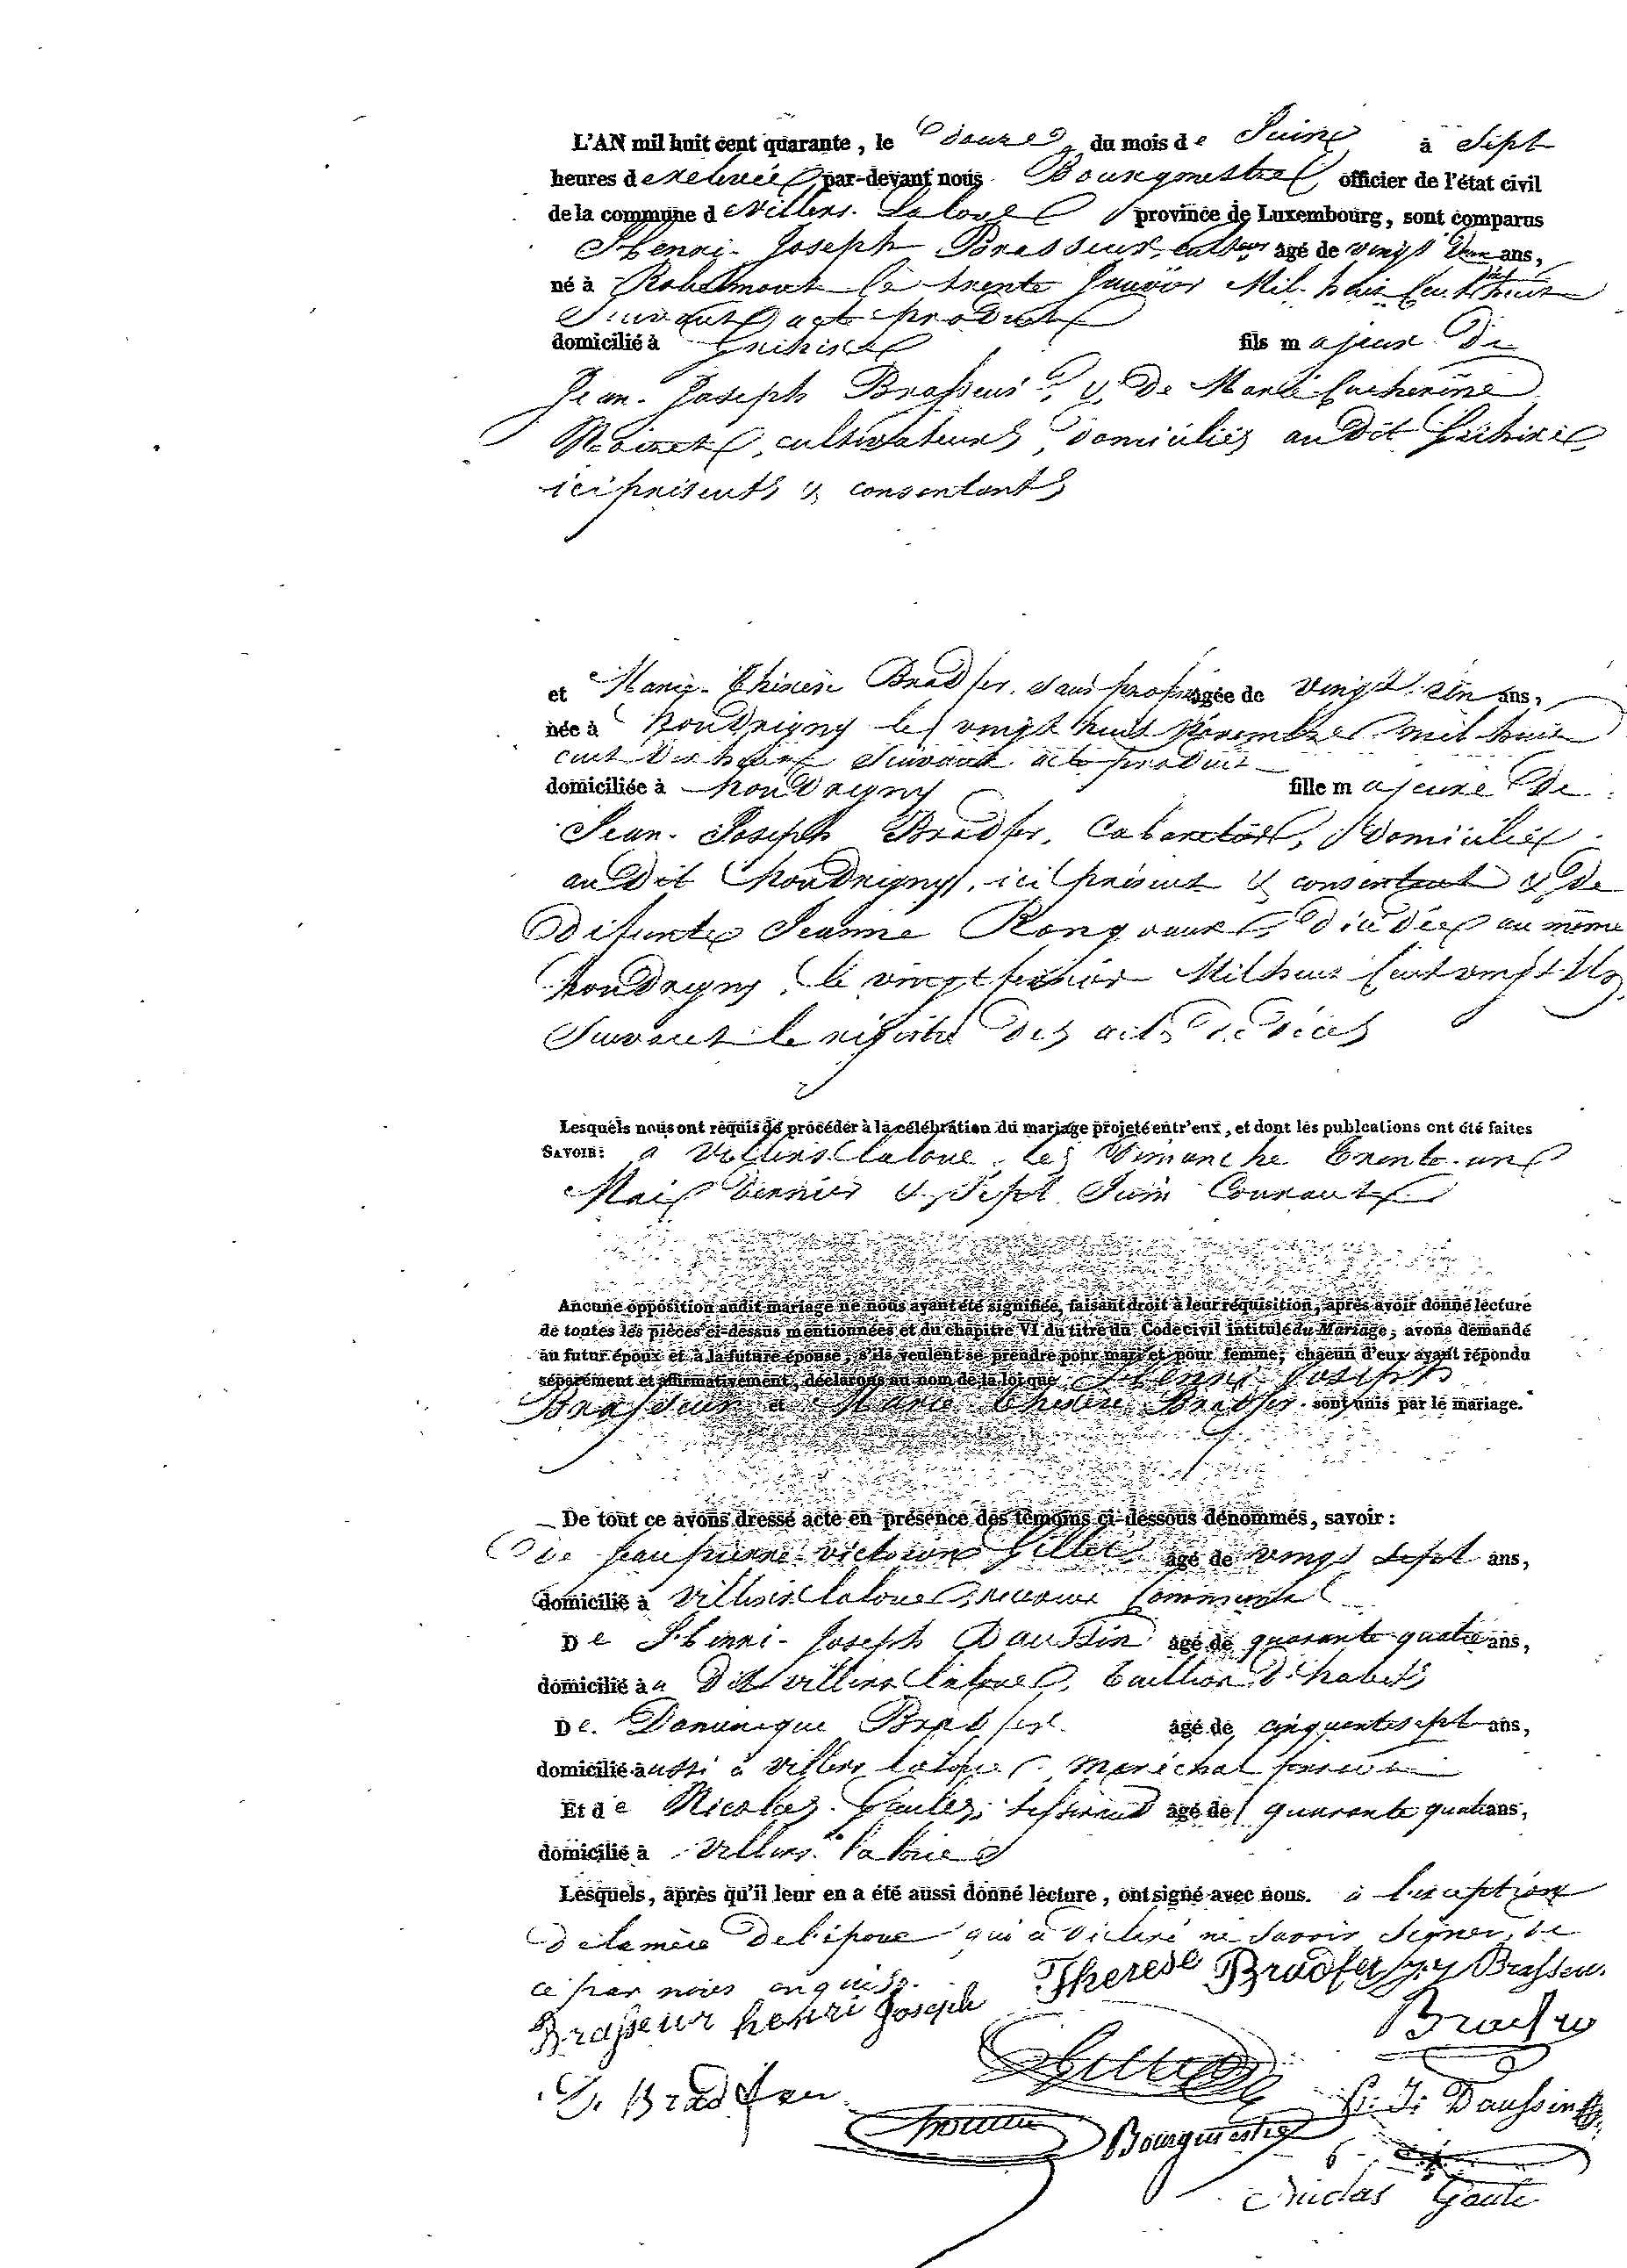 L'AN mil huit cent quarante, le douze du mois de Juin à Sept
heures de relevée par-devant nous Bourgmestre officier de l'état civil
de la commune de Villers-Laloue province de Luxembourg, sont comparus
Henri-Joseph Brasseur, âgé de vingt deux ans,
né à Robelmont le trente Janvier Mil huit Cent dix huit
Suivant acte produit
domicilié à fils majeur De
Jean-Joseph Brasseur, & De Marie Catherine
cultivateurs, domiciliés au Dit
ici présents & consentants
et Marie-Thérèse Bradfer, sans profession âgée de vingt un ans,
née à houdrigny le vingt huit Novembre mil huit
cent Dix huit Suivant acte produit
domiciliée à houdrigny fille majeure De
Jean-Joseph Bradfer, Cabaretier, Domicilié
au Dit houdrigny, ici présent & consentant & De
Défunte Jeanne Rongvaux, décédée au même
houdrigny, le vingt février Mil huit Cent vingt
Suivant le registre Des actes de Décès
Lesquels nous ont requis de procéder à la célébration du mariage projeté entr'eux, et dont les publcations ont été faites
SAVOIR: à Villers-laloue, les Dimanche Trente-un
Mai Dernier & Sept Juin Courant
Aucune opposition audit mariage ne nous ayant été signifiée, faisant droit à leur réquisition, après avoir donné lecture
de toutes les pièces ci-dessus mentionnées et du chapitre VI du titre du Code civil intitulé du Mariage; avons demandé
au futur époux et à la future épouse, s'ils veulent se prendre pour mari et pour femme; chacun d'eux ayant répondu
séparément et affirmativement, déclarons au nom de la loi que Henri Joseph
Brasseur et Marie Thérèse Bradfer sont unis par le mariage.
De tout ce avons dressé acte en présence des témoins ci-dessous dénommés, savoir:
De Jean pierre victoire Gillet âgé de vingt sept ans,
domicilié à Villers laloue, receveur Communal
De Henri-Joseph Daussin âgé de quarante quatre ans,
domicilié au Dit villers laloue, Tailleur D'habits
De Dominique Bradfer âgé de cinquante sept ans,
domicilié aussi à Villers laloue, maréchal ferrant
Et de Nicolas Tisserand âgé de quarante quatre ans,
domicilié à Villers laloue
Lesquels, après qu'il leur en a été aussi donné lecture, ont signé avec nous. à l'exception
de la mère De l'époux qui a Déclaré ne Savoir Signer, De
ce par nous enquise.
Therese Bradfer J.J Brasseur
Brasseur henri Joseph
Bradfer
Gillet
D. Bradfer
H. J. Daussin
Bourgmestre
Nicolas